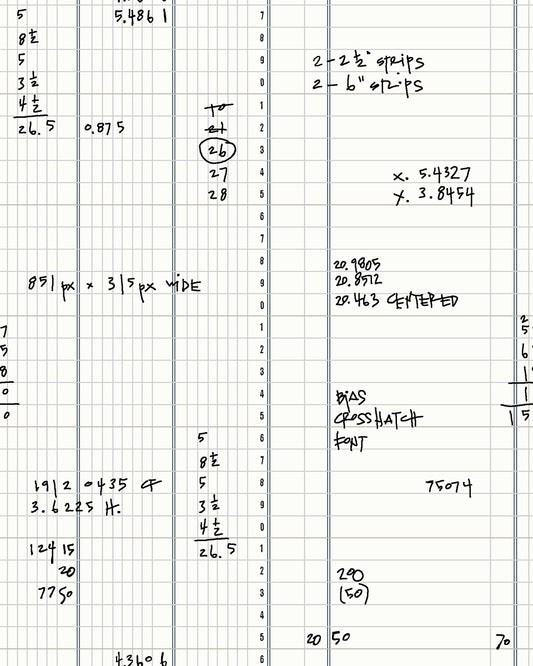 5 5.4861 7
8 ½ 8
5 9 2 - 2 ½" strips
3 ½ 0 2 - 6" strips
4 ½ 10 1
26.5 0.875 21 2
26 3
27 4 x. 5.4327
28 5 y. 3.8454
6
7
8 20.9805
851 px x 315 px wide 9 20.8512
0 20.463 CENTERED
7 1 2
5
5 2 6
8 3 1
0 4 BIAS 1
0 5 CROSSHATCH 15
5 6 FONT
8 ½ 7
1912 0435 CF 5 8 75074
3.6225 H. 3 ½ 9
4 ½ 0
12415 26.5 1
20 2 290
7750 3 (50)
4
5 20 50 70
4.3606 6